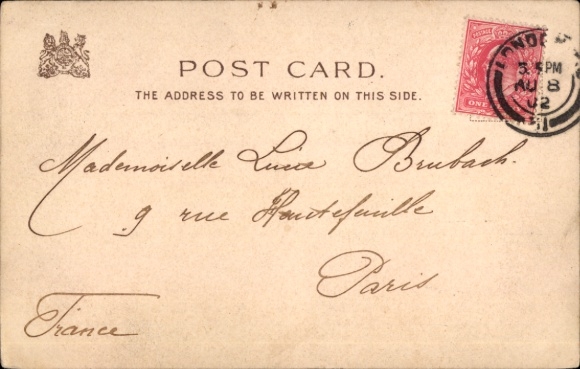 POST CARD.
THE ADDRESS TO BE WRITTEN ON THIS SIDE.
POSTAGE
ONE
LONDON
PM
AU 8
02
Mademoiselle Lucie Brubach.
9 rue Hautefeuille
Paris
France